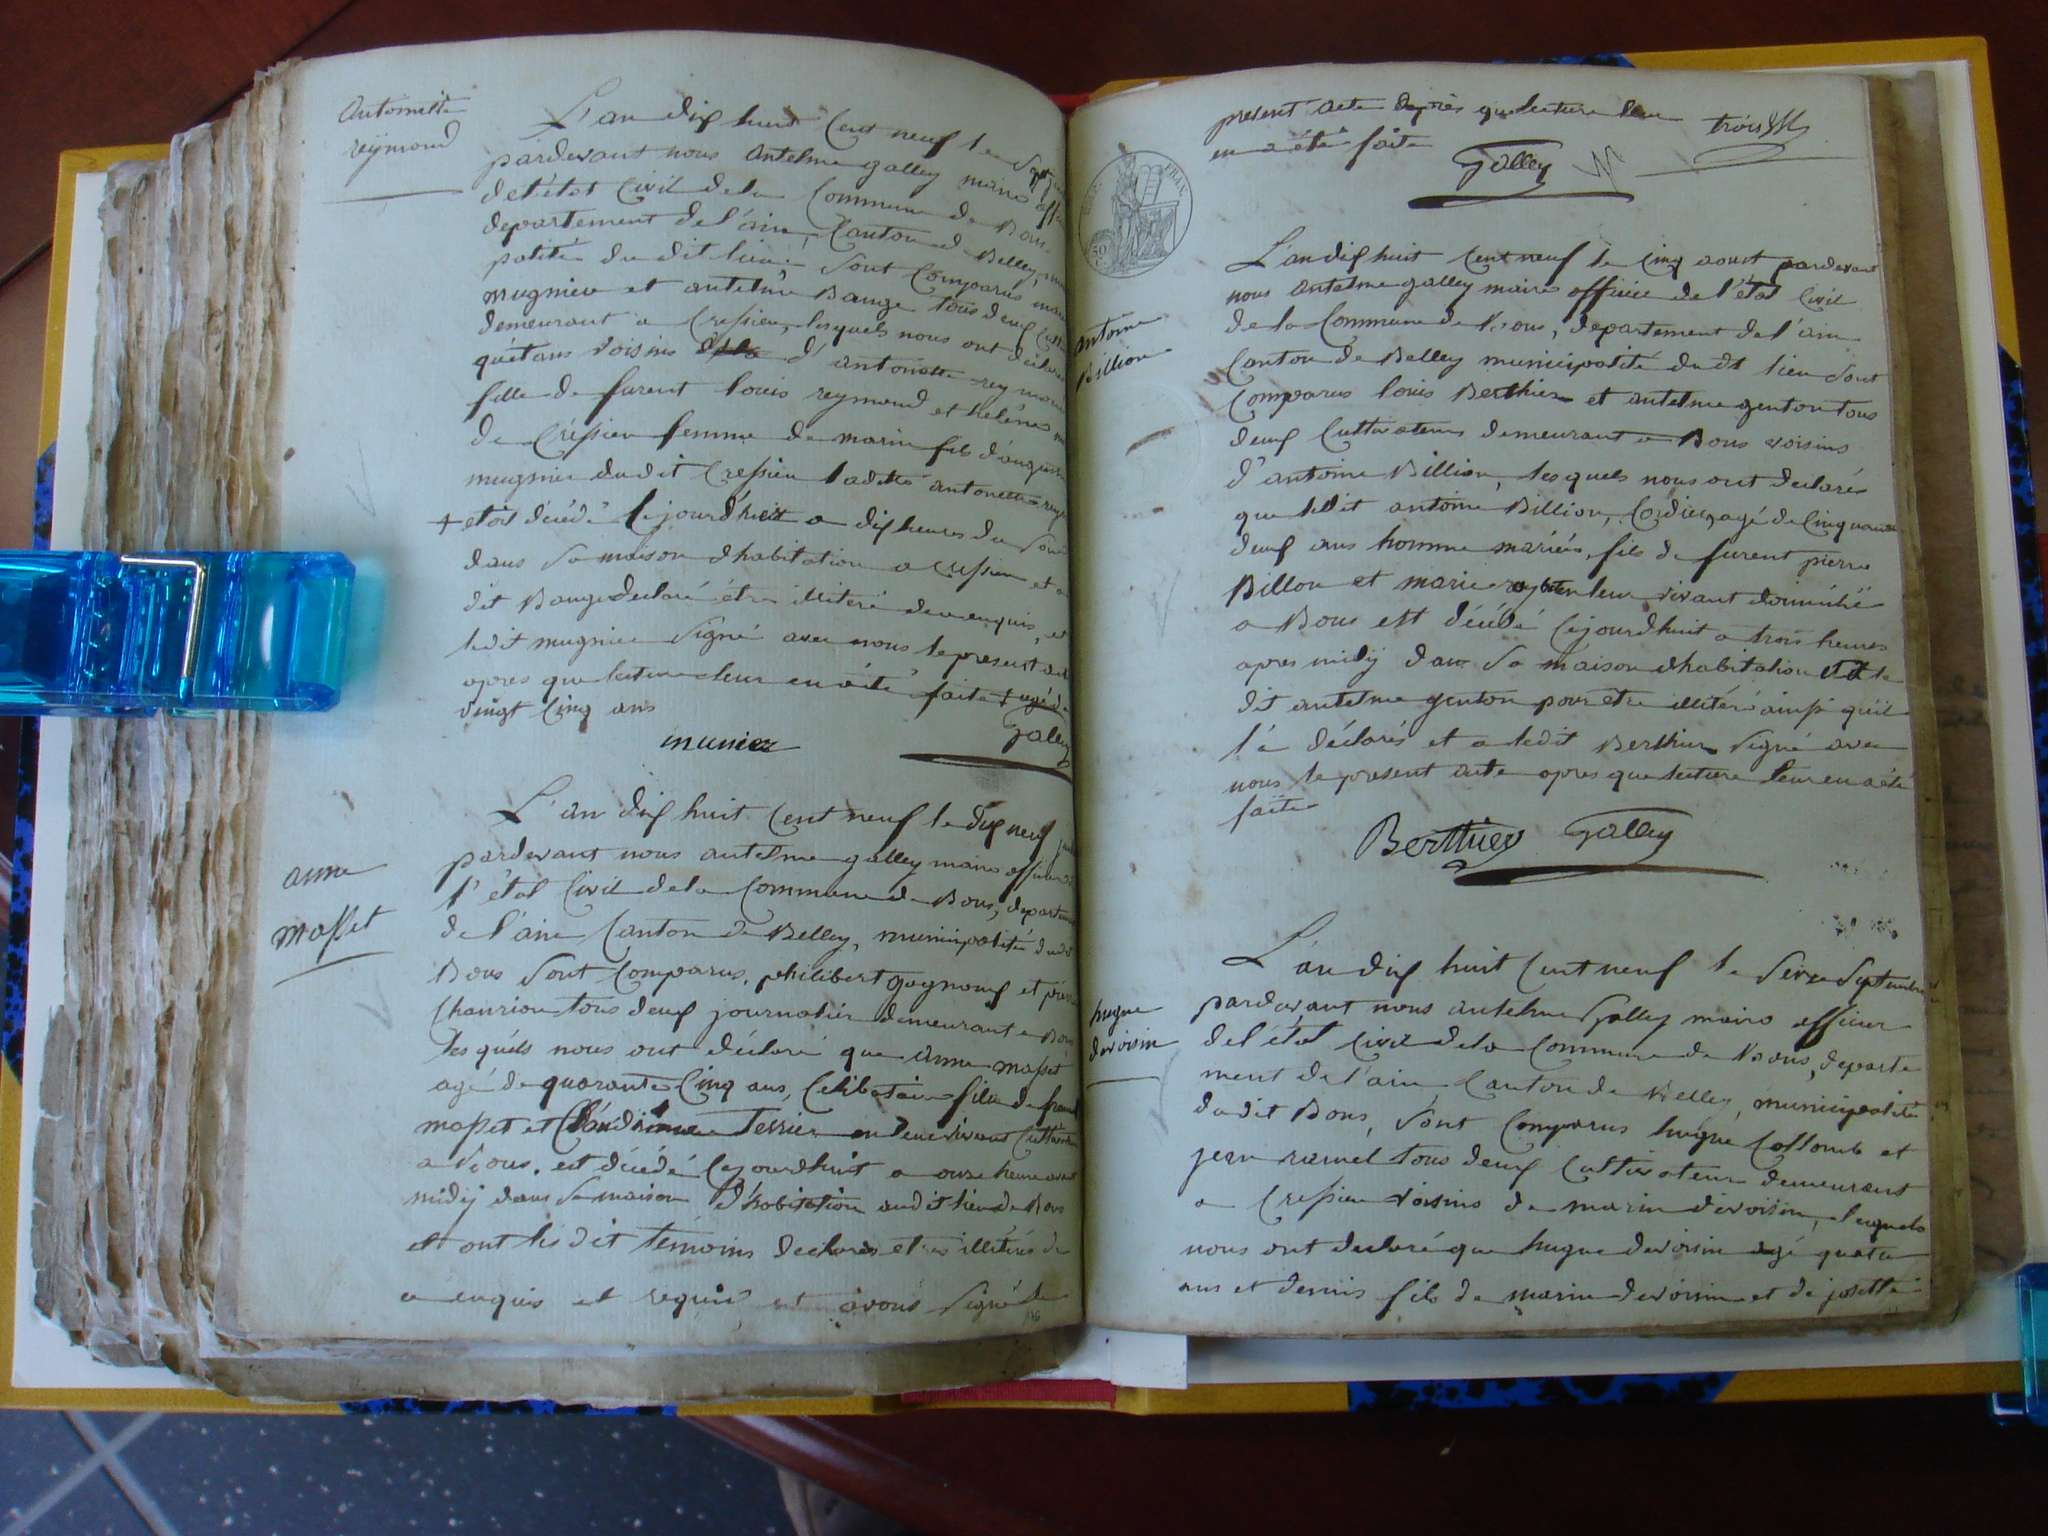 antoinette
reymond
L'an dix huit Cent neuf le
pardevant nous antelme galley maire
de l'état Civil de la Commune de Bons
departement de l'ain, Canton de Belley,
palité du dit lieu, sont Comparus
mugnier et antelme Bauge tous deux
demeurant a Cressieu, lesquels nous ont déclaré
qu'étans voisins d'antoinette reymond
fille de furent louis reymond et heléne
de Cressieu femme de marin fils d'
mugnier dudit Cressieu ladite antoinette
+ etoit décédé Cejourd'huit a dix heures du
dans sa maison d'habitation a Cressieu et
dit Bauge declaré étre illiteré de ce enquis, et
ledit mugnier signé avec nous le present
apres que lecture leur en a été faite + agé de
vingt Cinq ans
munier Galley
anne
masset
L'an dix huit Cent neuf le dix neuf
pardevant nous antelme galley maire officier de
l'état Civil de la Commune de Bons, departement
de l'ain Canton de Belley, municipalité dudit
Bons sont Comparus, philibert et pierre
Chanrion tous deux journalier demeurant a Bons
lesquels nous ont déclaré que anne masset
agé de quarante Cinq ans, Celibataire fille de
masset et Claudine Terrier en leur vivant Cultivateur
a Bons, est décédé Cejourdhuit a onze heure avant
midij dans sa maison d'habitation audit lieu de Bons
et ont les dit témoins declarés etres illitérés de
a enquis et requis et avons signé le
present acte apres que lecture leur
en a été faite
Galley
L'an dix huit Cent neuf le Cinq aoust pardevant
nous antelme galley maire officier de l'état Civil
de la Commune de Bons, departement de l'ain
Canton de Belley municipalité dudt lieu sont
Comparus louis Berthier et antelme genton tous
deux Cultivateurs demeurant a Bons voisins
d'antoine Billion, lesquels nous ont déclarés
que ledit antoine Billion, Cordier, agé de Cinquante
deux ans homme mariés, fils de furent pierre
Billon et marie en leur vivant domicilié
a Bons est décédé Cejourdhuit a trois heures
apres midij dans sa maison dhabitation et le
dit antelme genton pour etre illitéré ainsi qu'il
l'a déclarés et a ledit Berthier signé avec
nous le present acte apres que lecture leur en a été
faite
antoine
Billion
Berthier Galley
hugue
devoisin
L'an dix huit Cent neuf le seize septembre
pardevant nous antelme Galley maire officier
de l'état Civil de la Commune de Bons, departe
ment de l'ain Canton de Belley, municipalité
dudit Bons, sont Comparus hugue Collomb et
jean ramel tous deux Cultivateur demeurant
a Cressieu voisins de marin devoisin, lesquels
nous ont declaré que hugue devoisin agé quatre
ans et demis fils de marin devoisin et de josette